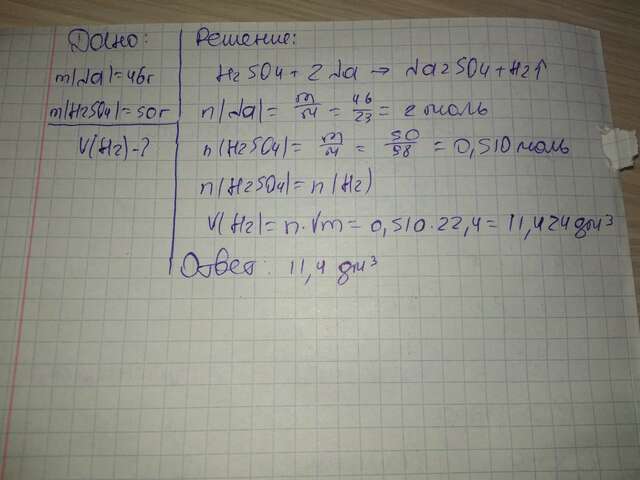 Дано:
m(Na)=46г
m(H2SO4)=50г
V(H2)-?
Решение:
H2SO4 + 2Na → Na2SO4 + H2↑
n(Na) = m/M = 46/23 = 2 моль
n(H2SO4) = m/M = 50/98 = 0,510 моль
n(H2SO4) = n(H2)
V(H2) = n·Vm = 0,510·22,4 = 11,424 дм³
Ответ: 11,4 дм³